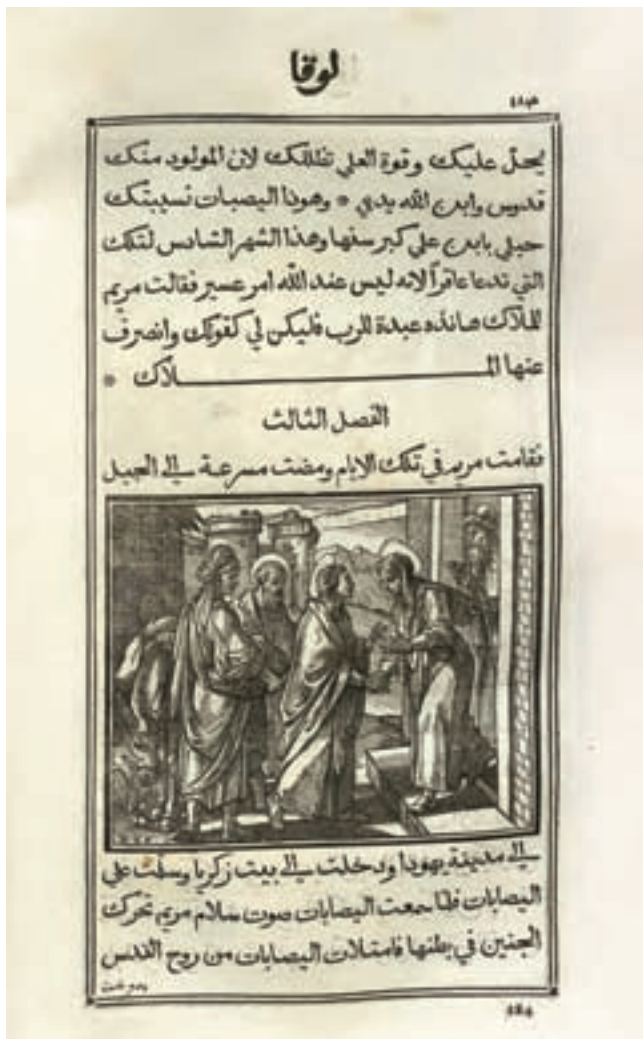 لوقا
يحل عليك وقوة العلي تظللك لان المولود منك
قدوس وابن الله يدعي * وهوذا اليصبات نسيبتك
حبلي بابن علي كبر سنها وهذا الشهر السادس لتلك
التي تدعا عاقرًا لانه ليس عند الله امر عسير فقالت مريم
للملاك هانذه عبدة للرب فليكن لي كقولك وانصرف
عنها المـــــــــلاك *
الفصل الثالث
فقامت مريم في تلك الايام ومضت مسرعة الي الجبل
الي مدينة يهودا ودخلت الي بيت زكريا وسلمت علي
اليصابات فلما سمعت اليصابات صوت سلام مريم تحرك
الجنين في بطنها فامتلات اليصابات من روح القدس
184